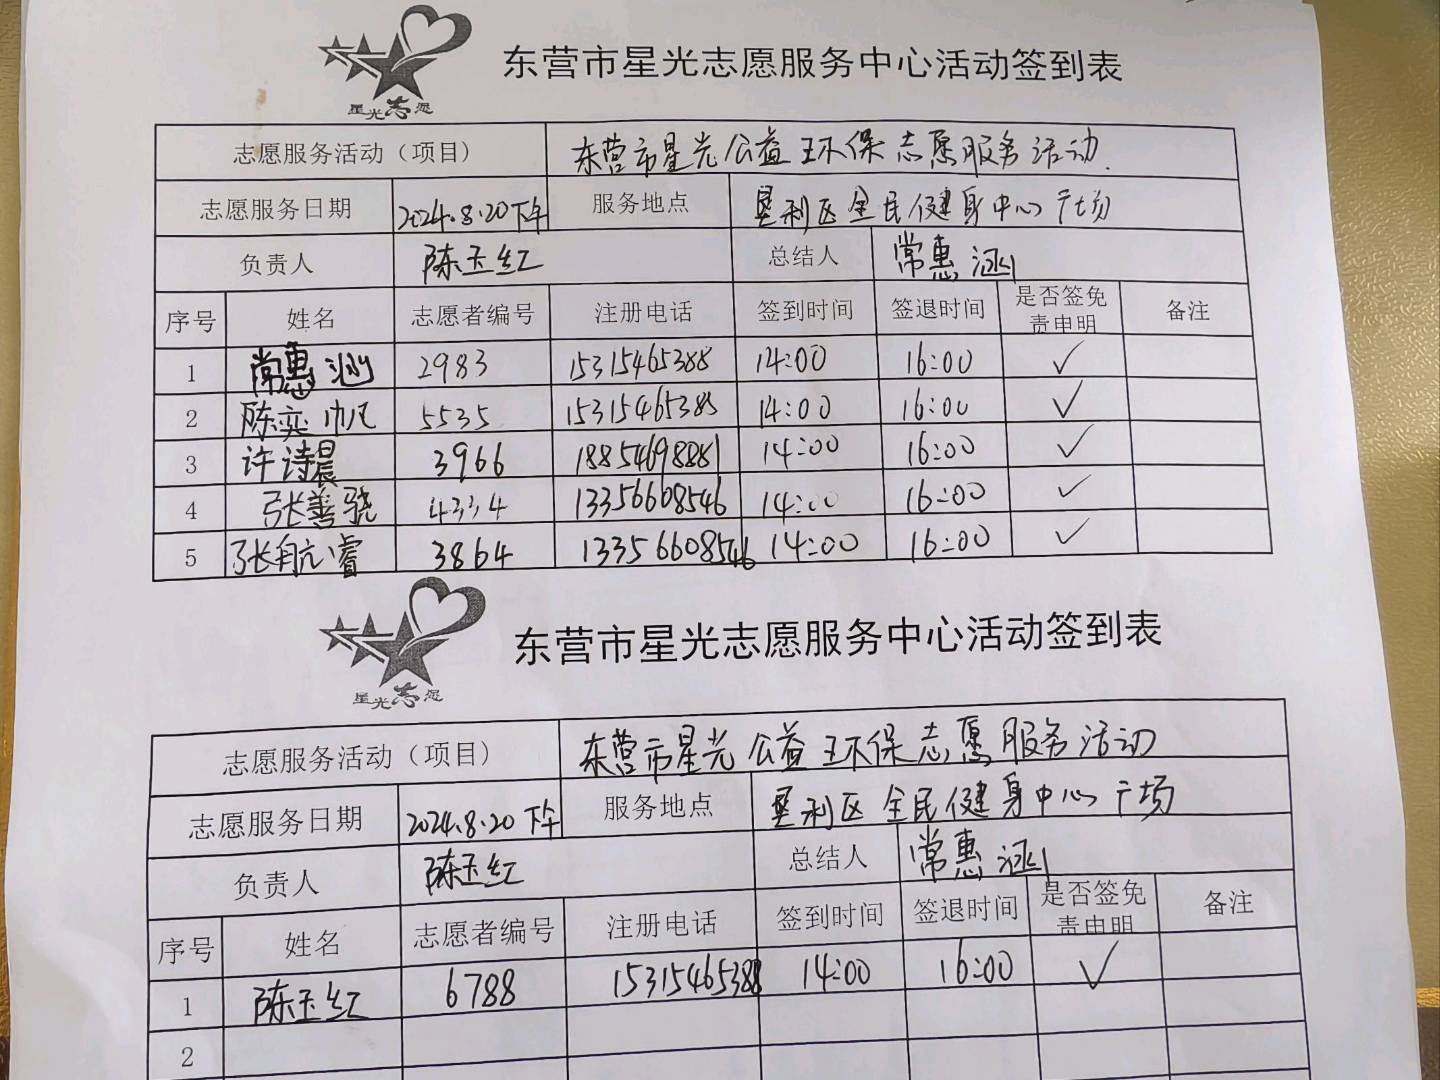 星光志愿
东营市星光志愿服务中心活动签到表
志愿服务活动（项目） 东营市星光公益环保志愿服务活动.
志愿服务日期 2024.8.20下午 服务地点 垦利区全民健身中心广场
负责人 陈玉红 总结人 常惠涵
序号 姓名 志愿者编号 注册电话 签到时间 签退时间 是否签免责申明 备注
1 常惠涵 2983 15315465388 14:00 16:00 ✓
2 陈奕帆 5535 15315465388 14:00 16:00 ✓
3 许诗晨 3966 18854698881 14:00 16:00 ✓
4 张善骁 4334 13356608546 14:00 16:00 ✓
5 张航睿 3864 13356608546 14:00 16:00 ✓
星光志愿
东营市星光志愿服务中心活动签到表
志愿服务活动（项目） 东营市星光公益环保志愿服务活动
志愿服务日期 2024.8.20下午 服务地点 垦利区全民健身中心广场
负责人 陈玉红 总结人 常惠涵
序号 姓名 志愿者编号 注册电话 签到时间 签退时间 是否签免责申明 备注
1 陈玉红 6788 15315465388 14:00 16:00 ✓
2